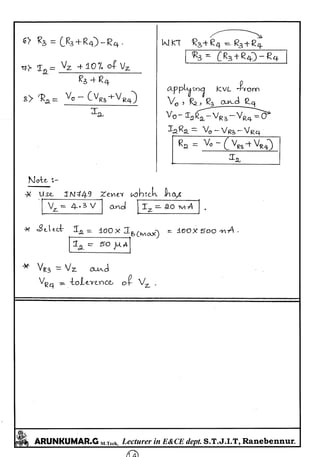 6) R3 = (R3+R4) - R4.
WKT R3+R4 = R3+R4
R3 = (R3+R4) - R4
7) I2 = Vz + 10% of Vz / R3 + R4
8) R2 = Vo - (VR3 + VR4) / I2
applying KVL from
Vo, R2, R3 and R4
Vo - I2R2 - VR3 - VR4 = 0
I2R2 = Vo - VR3 - VR4
R2 = Vo - (VR3 + VR4) / I2
Note :-
* Use IN749 Zener which has
Vz = 4.3 V and Iz = 20 mA.
* Select I2 = 100 x IB(max) = 100 x 500 nA.
I2 = 50 µA
* VR3 = Vz and
VR4 = tolerence of Vz.
ARUNKUMAR.G M.Tech, Lecturer in E&CE dept. S.T.J.I.T, Ranebennur.
14